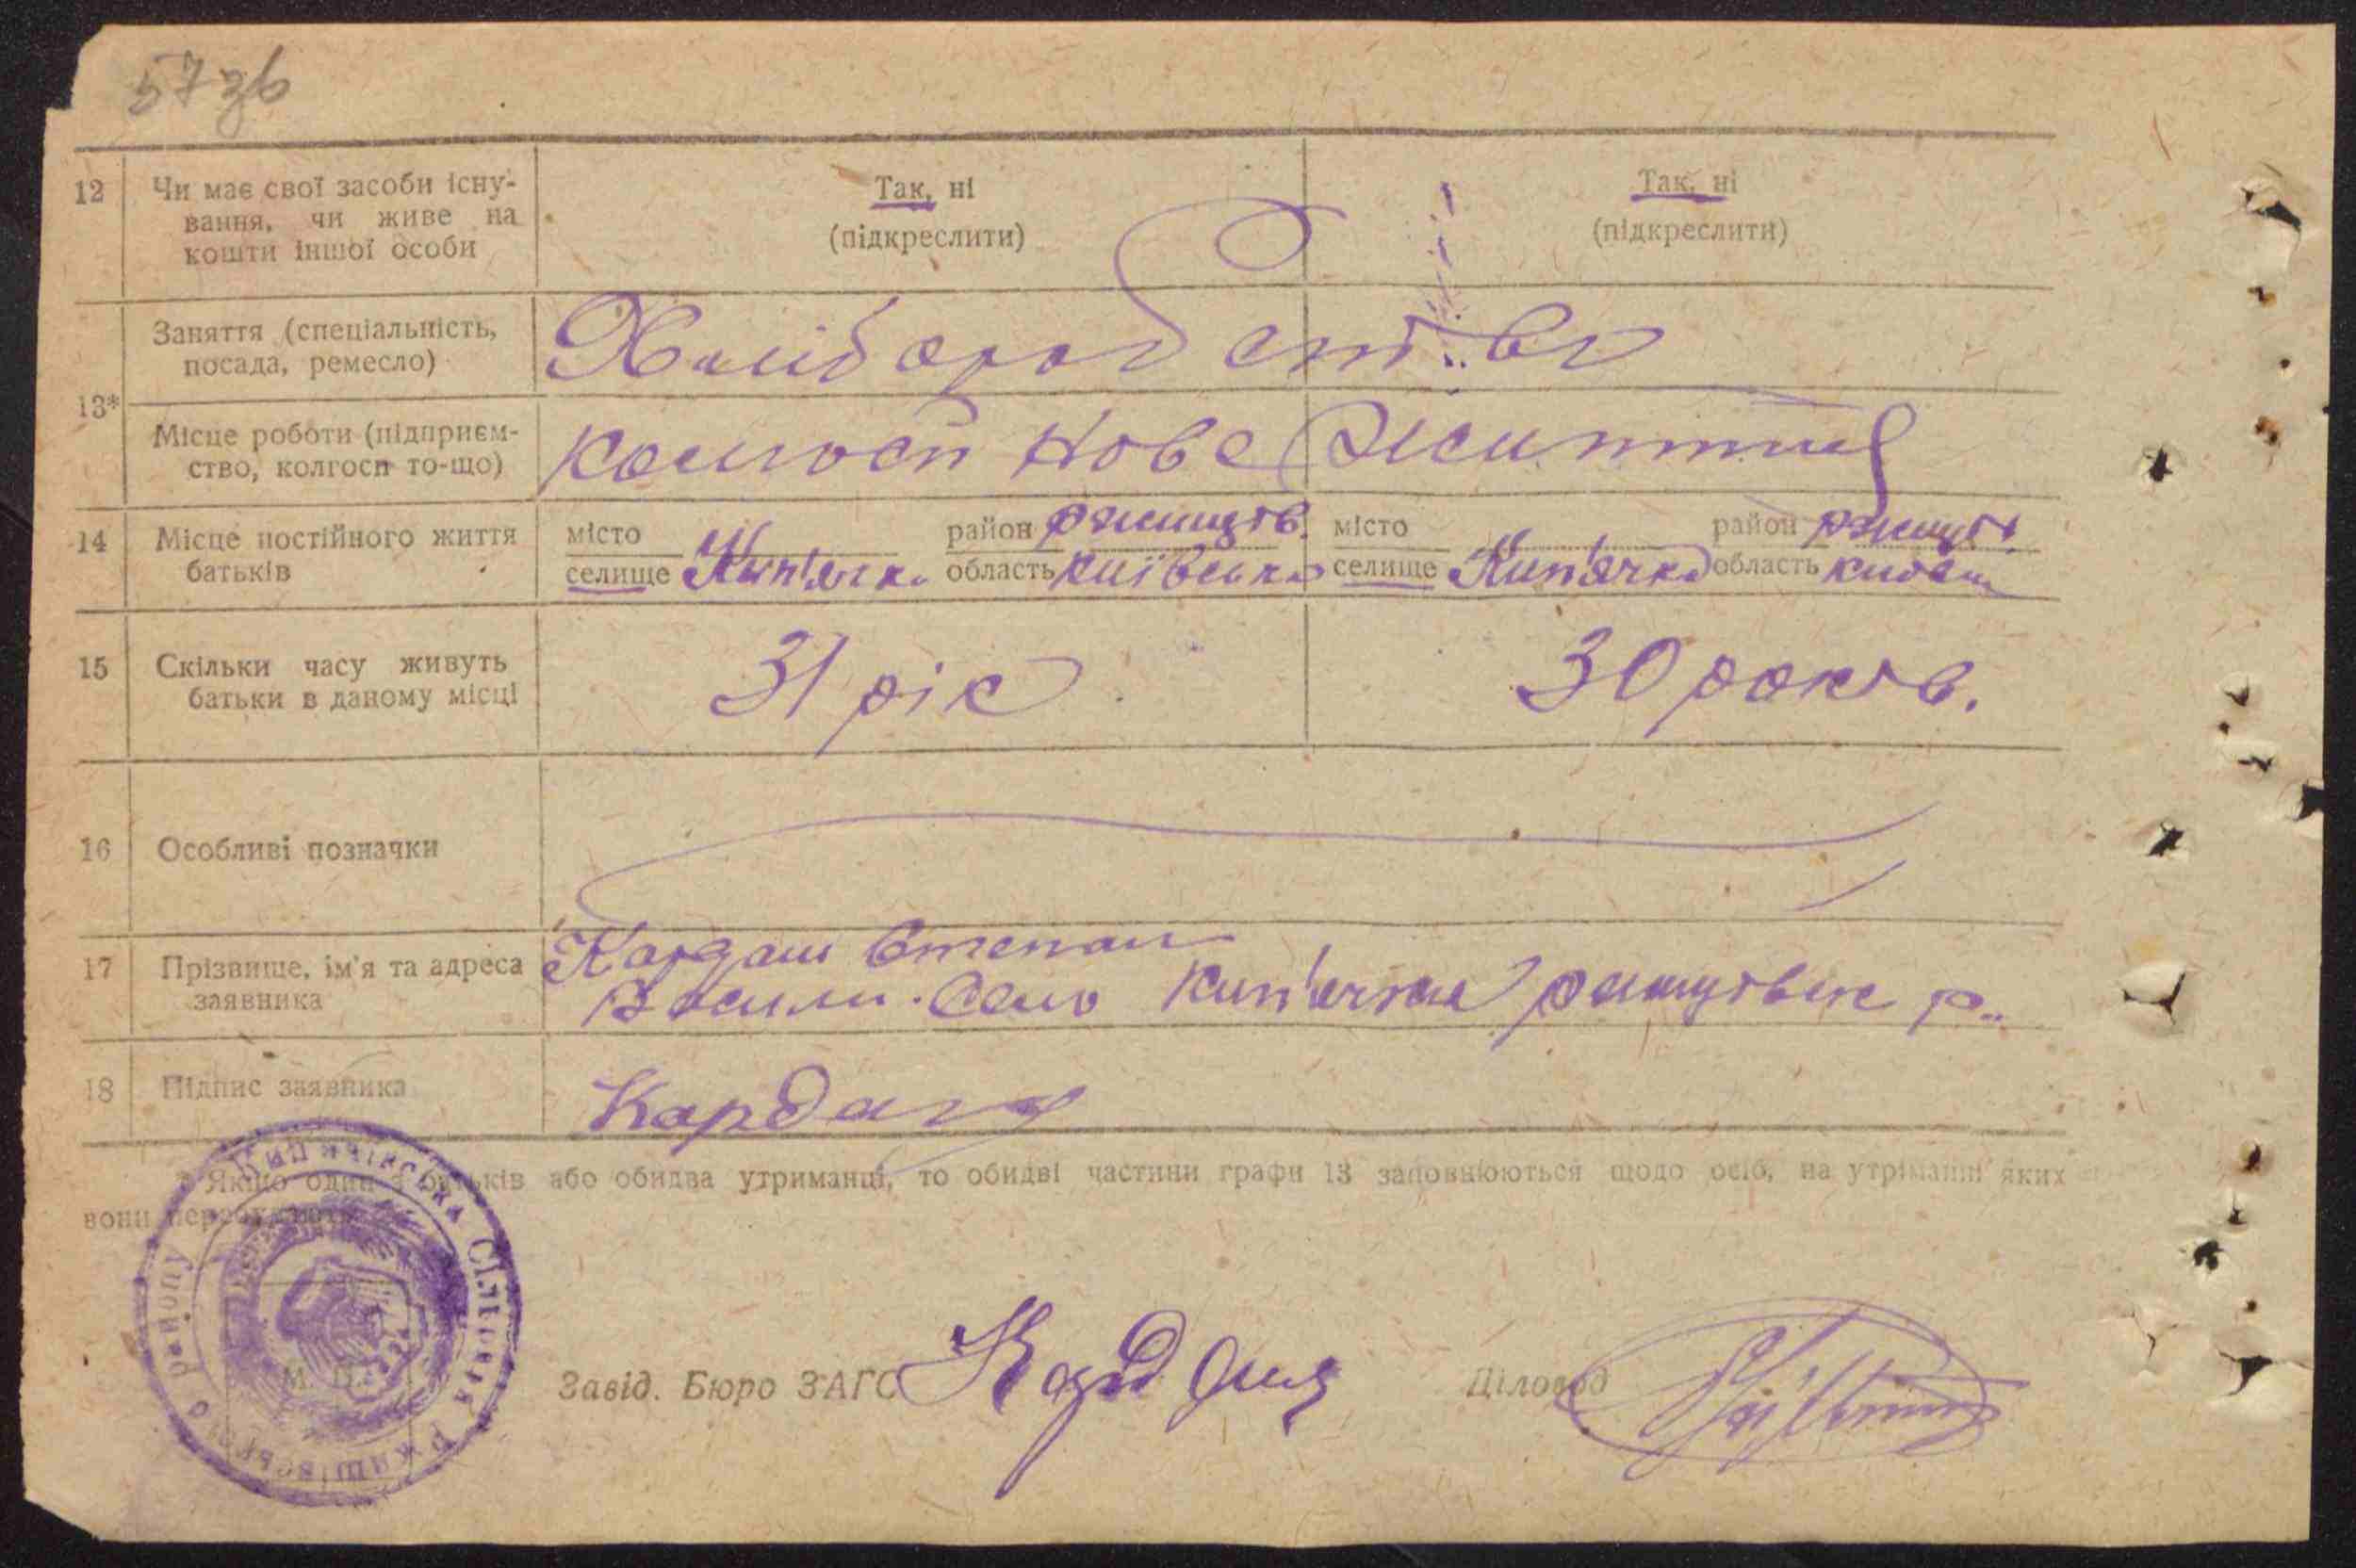 57зв
12 Чи має свої засоби існу-
вання, чи живе на
кошти іншої особи
Так, ні
(підкреслити)
Так, ні
(підкреслити)
13*
Заняття (спеціальність,
посада, ремесло)
Хліборобство
Місце роботи (підприєм-
ство, колгосп то-що)
Колгосп Нове Життя
14 Місце постійного життя
батьків
місто
селище Кип'ячка
район Ржищів.
область Київська
місто
селище Кип'ячка
район Ржищів.
область
15 Скільки часу живуть
батьки в даному місці
31 рік
30 років.
16 Особливі позначки
17 Прізвище, ім'я та адреса
заявника
Кардаш Степан
Васили. Село Кип'ячка р..
18 Підпис заявника
Кардаш
* Якщо один з батьків або обидва утриманці, то обидві частини графи 13 заповнюються щодо осіб, на утриманні яких
вони перебувають.
Кип'ячківська Сільська Рада Ржищівського району
М. П.
Завід. Бюро ЗАГС Кардаш
Діловод